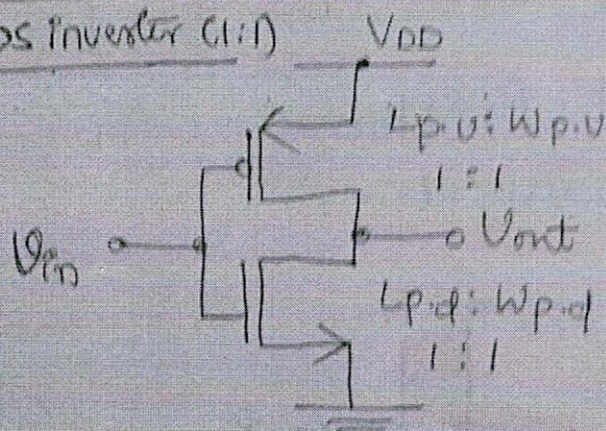 os inverter (1:1)
VDD
Lp.u : Wp.u
1 : 1
Vin
Vout
Lp.d : Wp.d
1 : 1